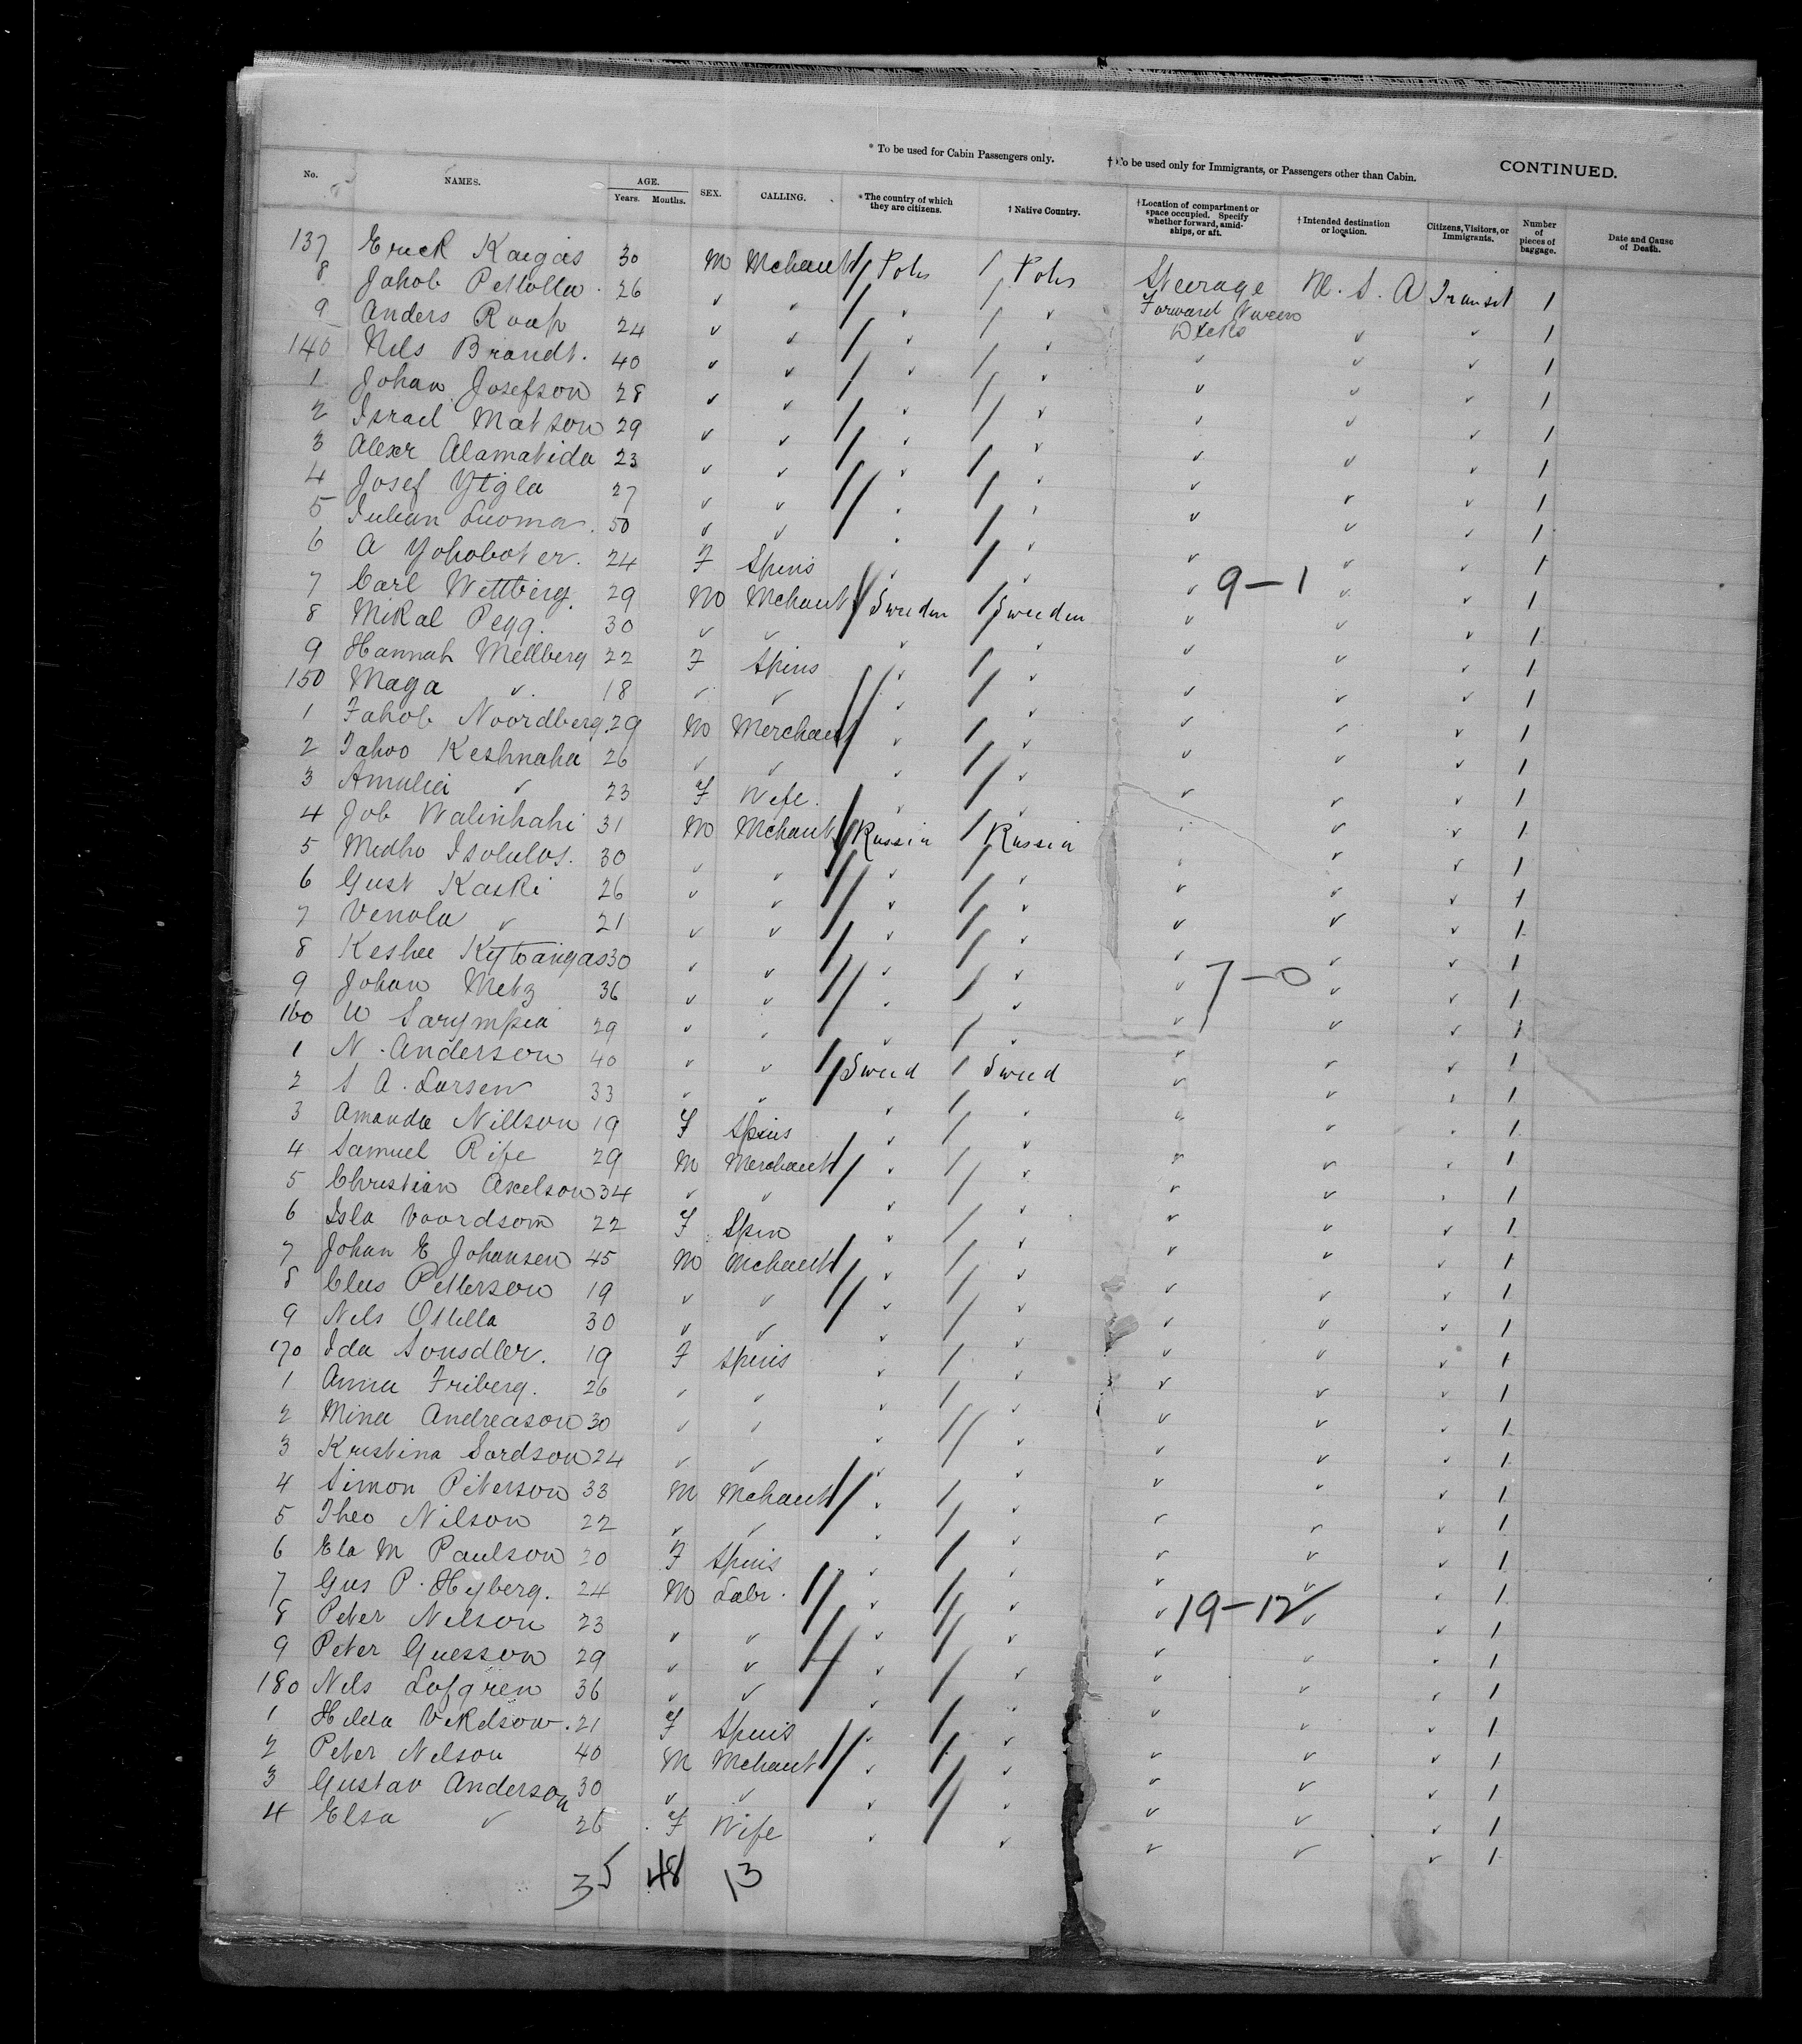 * To be used for Cabin Passengers only. † To be used only for Immigrants, or Passengers other than Cabin. CONTINUED.
No. NAMES. AGE. Years. Months. SEX. CALLING. *The country of which they are citizens. † Native Country. †Location of compartment or space occupied. Specify whether forward, amid-ships, or aft. †Intended destination or location. Citizens, Visitors, or Immigrants. Number of pieces of baggage. Date and Cause of Death.
137 Erick Kaigas 30 M Mchant Steerage U. S. A Transit 1
8 Jahob Pettolla 26 ✓ ✓ ✓ ✓ Forward Decks ✓ ✓ 1
9 Anders Raap 24 ✓ ✓ ✓ ✓ ✓ ✓ ✓ 1
140 Nils Brandt. 40 ✓ ✓ ✓ ✓ ✓ ✓ ✓ 1
1 Johan Josefson 28 ✓ ✓ ✓ ✓ ✓ ✓ ✓ 1
2 Israel Matson 29 ✓ ✓ ✓ ✓ ✓ ✓ ✓ 1
3 Alexr Alamatida 23 ✓ ✓ ✓ ✓ ✓ ✓ ✓ 1
4 Josef Ytgla 27 ✓ ✓ ✓ ✓ ✓ ✓ ✓ 1
5 Julian Luoma 50 ✓ ✓ ✓ ✓ ✓ ✓ ✓ 1
6 A Yohoboter. 24 F Spins ✓ ✓ ✓ ✓ ✓ 1
7 Carl Wettberg. 29 M Mchant Sweden Sweden ✓ 9-1 ✓ ✓ 1
8 Mikal Pegg. 30 ✓ ✓ ✓ ✓ ✓ ✓ ✓ 1
9 Hannah Mellberg 22 F Spins ✓ ✓ ✓ ✓ ✓ 1
150 Maga ✓ 18 ✓ ✓ ✓ ✓ ✓ ✓ ✓ 1
1 Jahob Noordberg. 29 M Merchant ✓ ✓ ✓ ✓ ✓ 1
2 Jahoo Keshnaha 26 ✓ ✓ ✓ ✓ ✓ ✓ ✓ 1
3 Amulia ✓ 23 F Wife. ✓ ✓ ✓ ✓ ✓ 1
4 Job Walinhahi 31 M Mchant Russia Russia ✓ ✓ ✓ 1
5 Medho Isolulos. 30 ✓ ✓ ✓ ✓ ✓ ✓ ✓ 1
6 Gust Kaski 26 ✓ ✓ ✓ ✓ ✓ ✓ ✓ 1
7 Venola ✓ 21 ✓ ✓ ✓ ✓ ✓ ✓ ✓ 1
8 Keshee Kytoangas 30 ✓ ✓ ✓ ✓ ✓ ✓ ✓ 1
9 Johan Metz 36 ✓ ✓ ✓ ✓ ✓ 7-0 ✓ ✓ 1
160 W Sarympia 29 ✓ ✓ ✓ ✓ ✓ ✓ ✓ 1
1 N. Anderson 40 ✓ ✓ Swed Swed ✓ ✓ ✓ 1
2 S A. Larsen 33 ✓ ✓ ✓ ✓ ✓ ✓ ✓ 1
3 Amanda Nillson 19 F Spins ✓ ✓ ✓ ✓ ✓ 1
4 Samuel Rife 29 M Merchant ✓ ✓ ✓ ✓ ✓ 1
5 Christian Axelson 34 ✓ ✓ ✓ ✓ ✓ ✓ ✓ 1
6 Isla Voordsom 22 F Spin ✓ ✓ ✓ ✓ ✓ 1
7 Johan E Johansen 45 M Mchant ✓ ✓ ✓ ✓ ✓ 1
8 Clus Petterson 19 ✓ ✓ ✓ ✓ ✓ ✓ ✓ 1
9 Nils Ottella 30 ✓ ✓ ✓ ✓ ✓ ✓ ✓ 1
170 Ida Sonsdler. 19 F Spins ✓ ✓ ✓ ✓ ✓ 1
1 Anna Friberg. 26 ✓ ✓ ✓ ✓ ✓ ✓ ✓ 1
2 Mina Andreason 30 ✓ ✓ ✓ ✓ ✓ ✓ ✓ 1
3 Kristina Sardson 24 ✓ ✓ ✓ ✓ ✓ ✓ ✓ 1
4 Simon Peterson 33 M Mchant ✓ ✓ ✓ ✓ ✓ 1
5 Theo Nilson 22 ✓ ✓ ✓ ✓ ✓ ✓ ✓ 1
6 Ela M Paulson 20 F Spins ✓ ✓ ✓ ✓ ✓ 1
7 Gus P. Hyberg. 24 M Labr. ✓ ✓ ✓ ✓ ✓ 1
8 Peter Nelson 23 ✓ ✓ ✓ ✓ ✓ 19-12 ✓ ✓ 1
9 Peter Guesson 29 ✓ ✓ ✓ ✓ ✓ ✓ ✓ 1
180 Nils Lofgren 36 ✓ ✓ ✓ ✓ ✓ ✓ ✓ 1
1 Hilda Vekelson. 21 F Spins ✓ ✓ ✓ ✓ ✓ 1
2 Peter Nelson 40 M Mchant ✓ ✓ ✓ ✓ ✓ 1
3 Gustav Anderson 30 ✓ ✓ ✓ ✓ ✓ ✓ ✓ 1
4 Elsa ✓ 26 F Wife ✓ ✓ ✓ ✓ ✓ 1
35 48 13